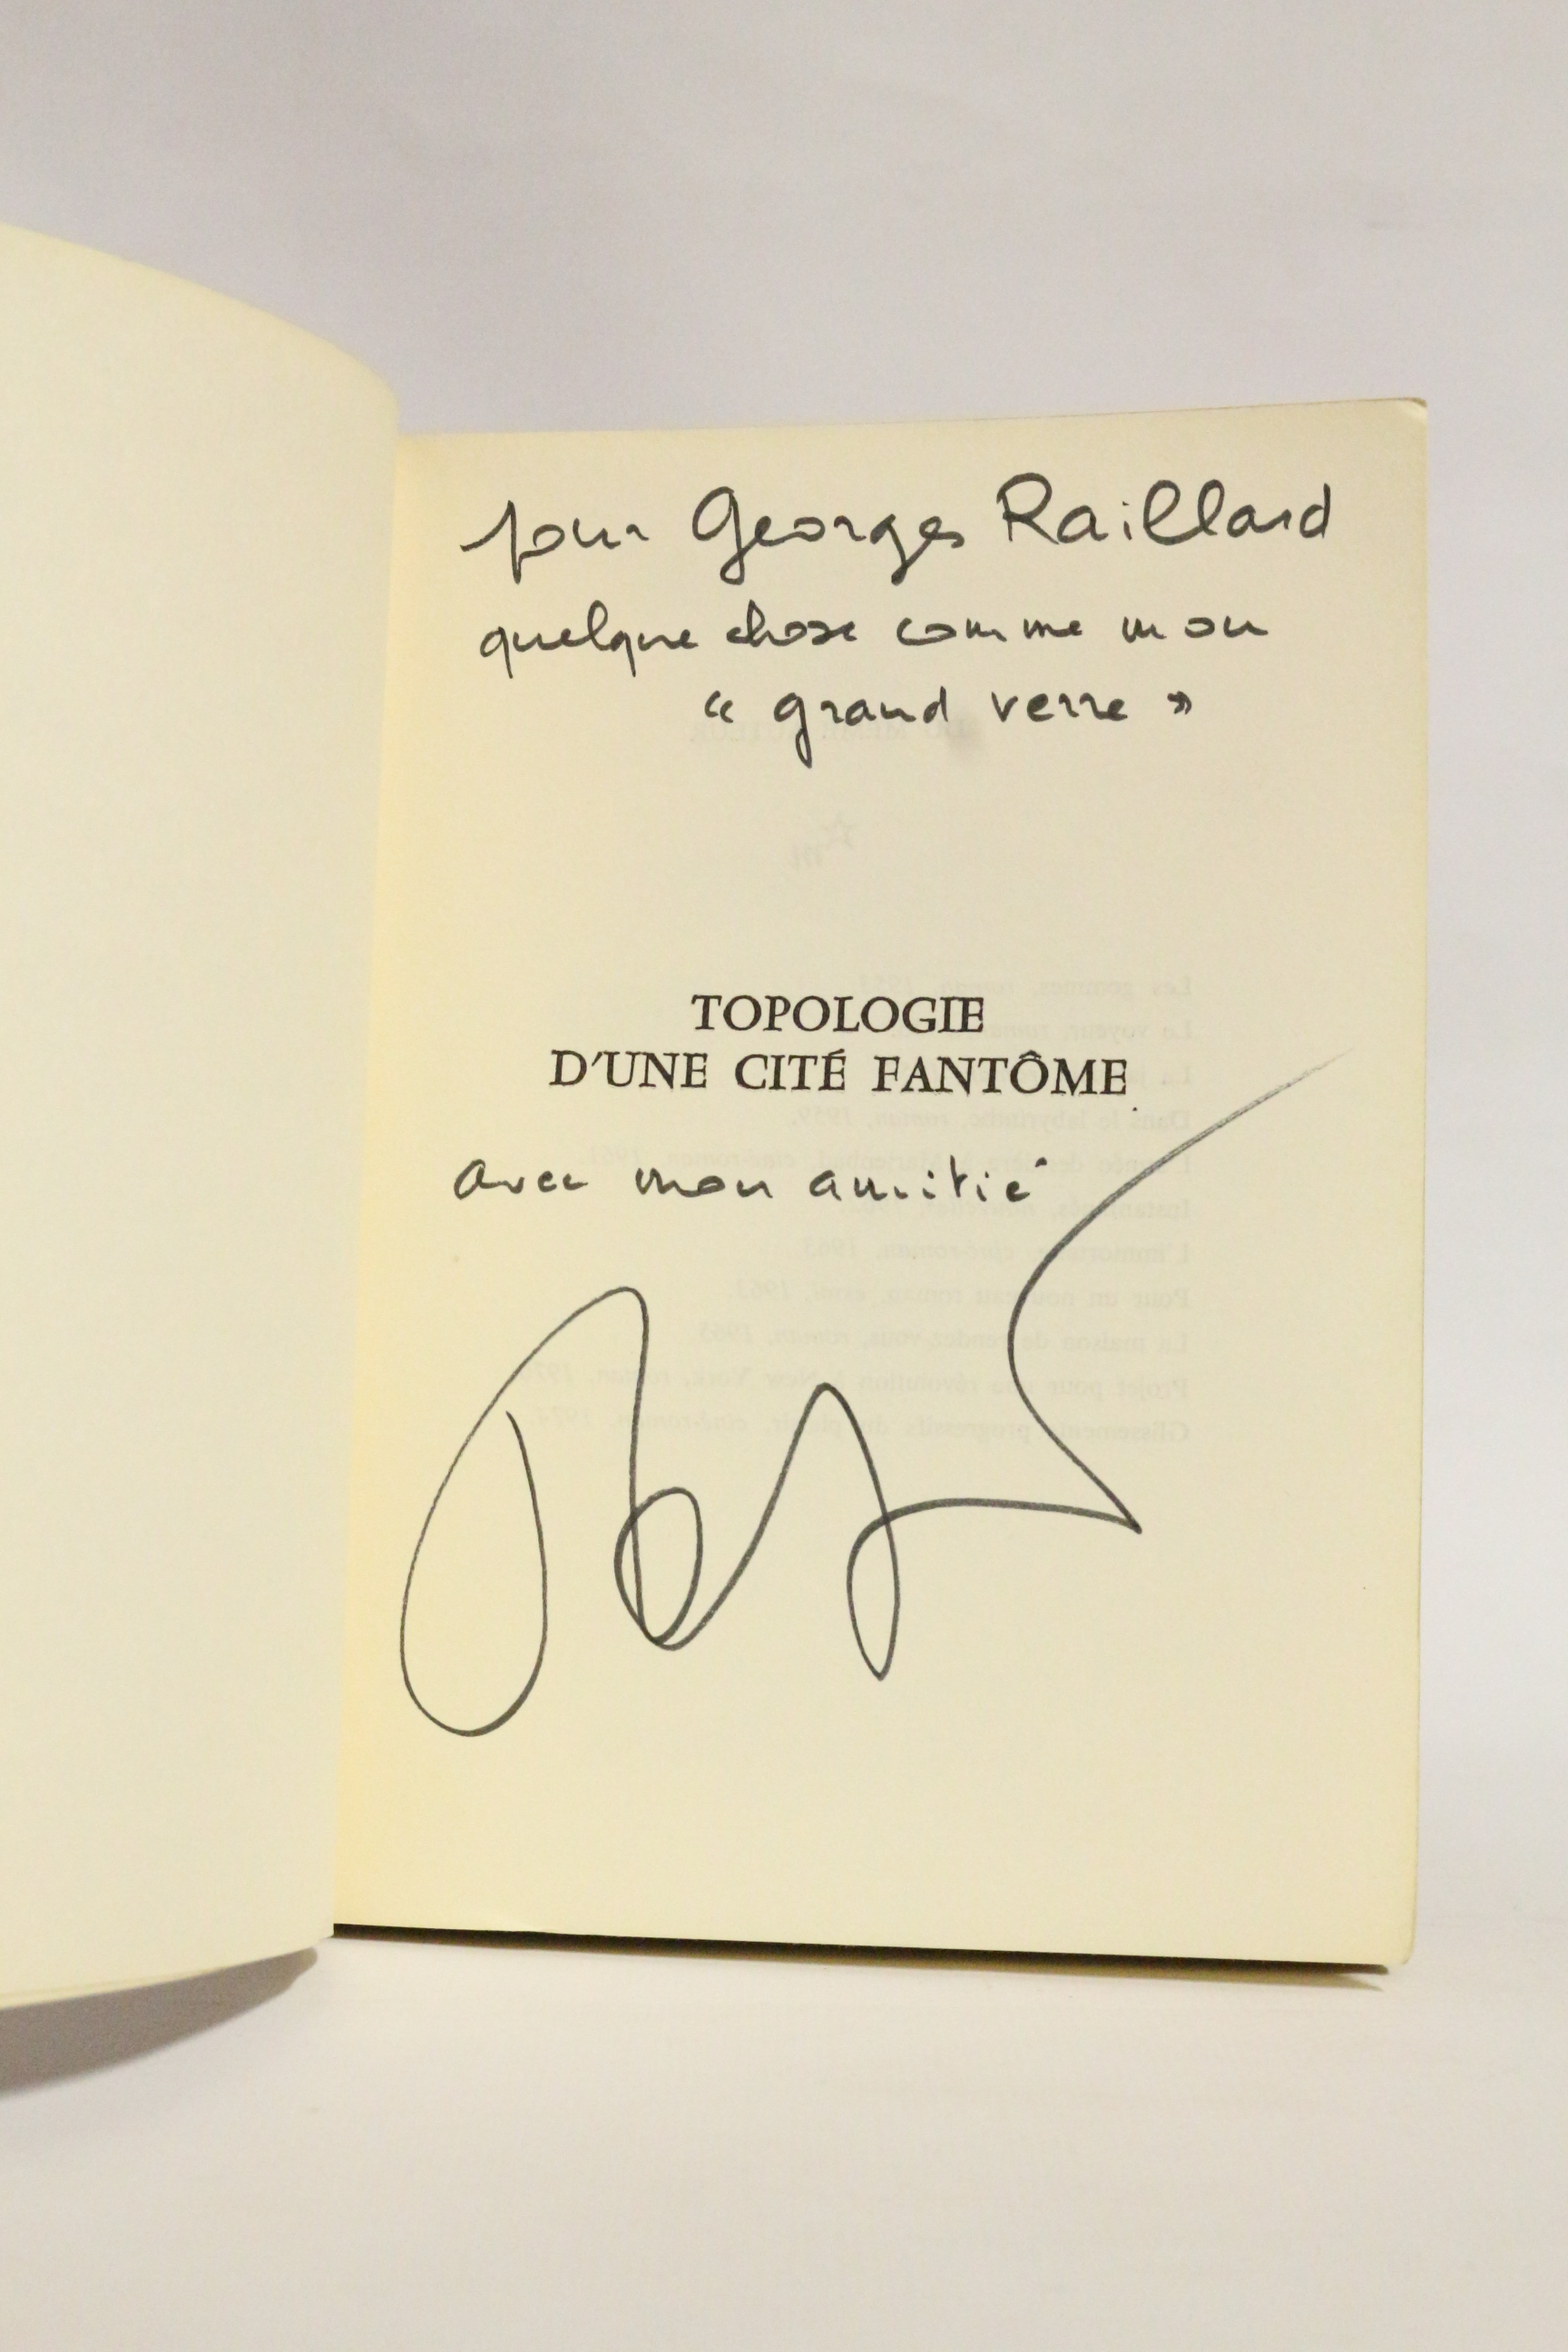 pour Georges Raillard
quelque chose comme mon
« grand verre »
TOPOLOGIE
D'UNE CITÉ FANTÔME
avec mon amitié